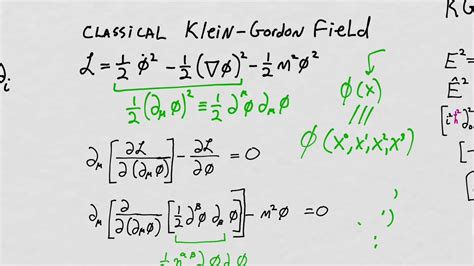 CLASSICAL Klein-Gordon Field
K G
ℒ = ½ φ̇² − ½ (∇φ)² − ½ m²φ²
∂ᵢ
½ (∂_μ φ)² ≡ ½ ∂^μ φ ∂_μ φ
φ(x)
///
φ(x⁰, x¹, x², x³)
E² =
Ê² =
[i²ħ²∂₀
∂_μ [∂ℒ / ∂(∂_μ φ)] − ∂ℒ/∂φ = 0
∂_μ [∂ / ∂(∂_μ φ) [½ ∂^β φ ∂_β φ] − m²φ = 0
½ η^{αβ} ∂ φ ∂ φ